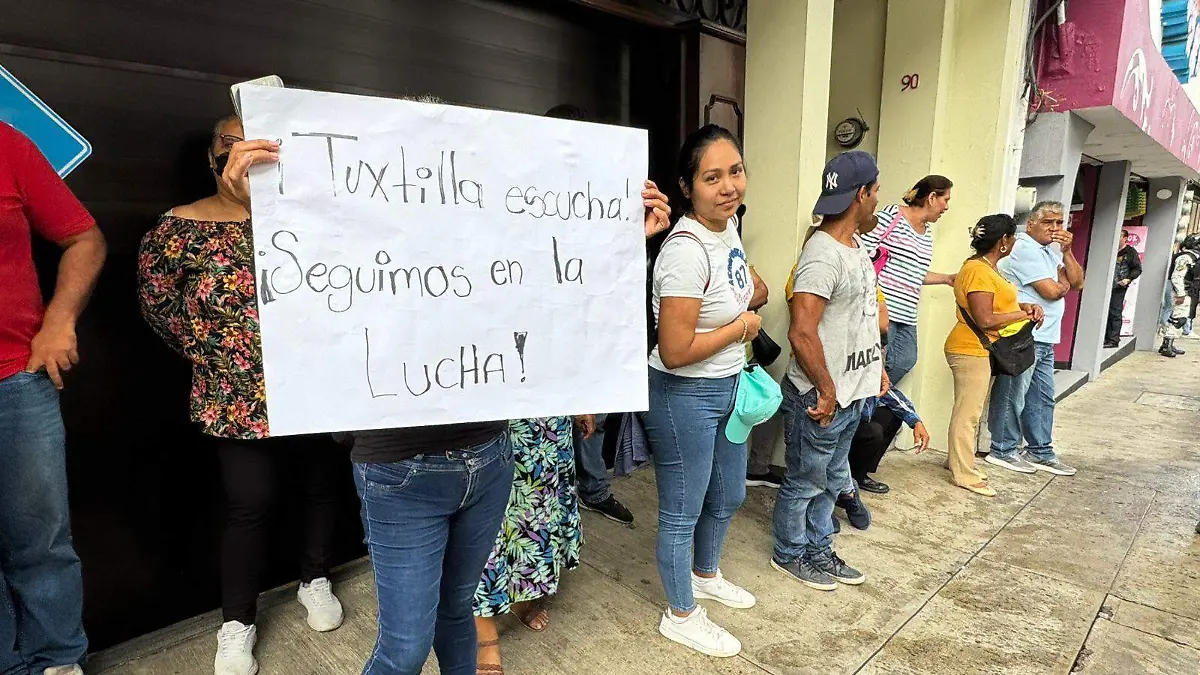 ¡Tuxtilla escucha!
¡Seguimos en la
LUCHA!
90
NY